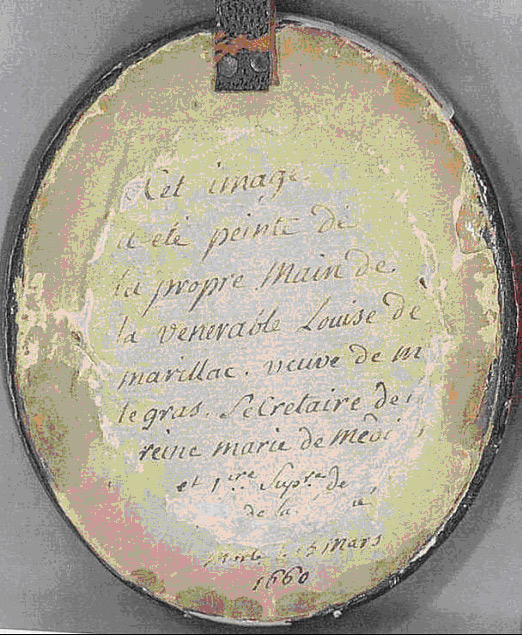 Cet image
a eté peinte de
la propre Main de
la venerable Louise de
marillac. veuve de m
le gras. Secretaire de
reine marie de Medi
et 1ere Supre de
de la
Morte 15 Mars
1660